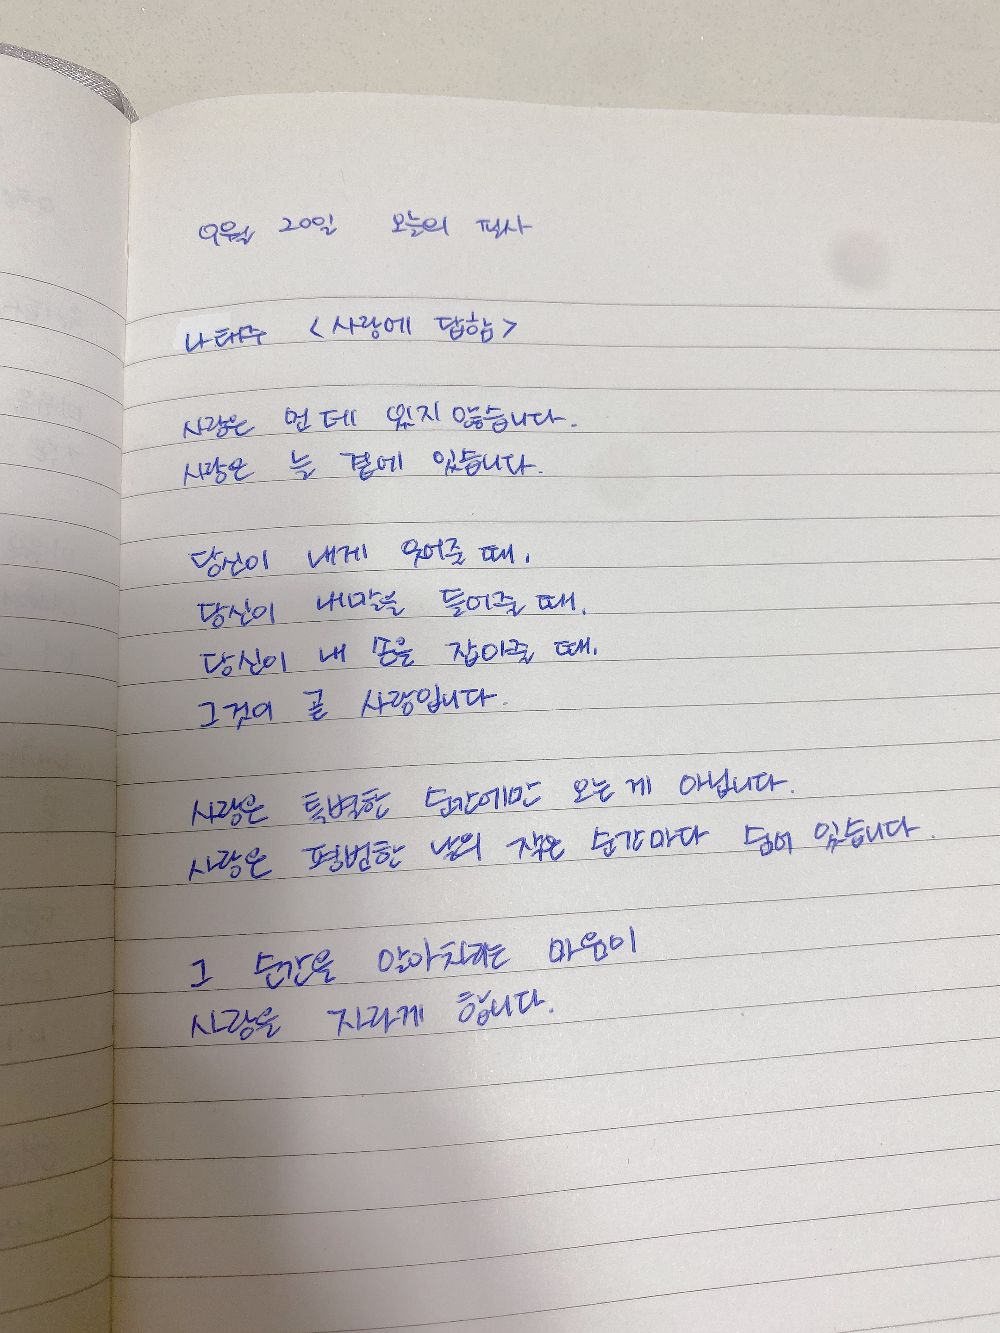 9월 20일 오늘의 필사
나태주 <사랑에 답함>
사랑은 먼 데 있지 않습니다.
사랑은 늘 곁에 있습니다.
당신이 내게 웃어줄 때,
당신이 내말을 들어줄 때,
당신이 내 손을 잡아줄 때,
그것이 곧 사랑입니다.
사랑은 특별한 순간에만 오는 게 아닙니다.
사랑은 평범한 날의 작은 순간마다 숨어 있습니다.
그 순간을 알아차리는 마음이
사랑을 자라게 합니다.